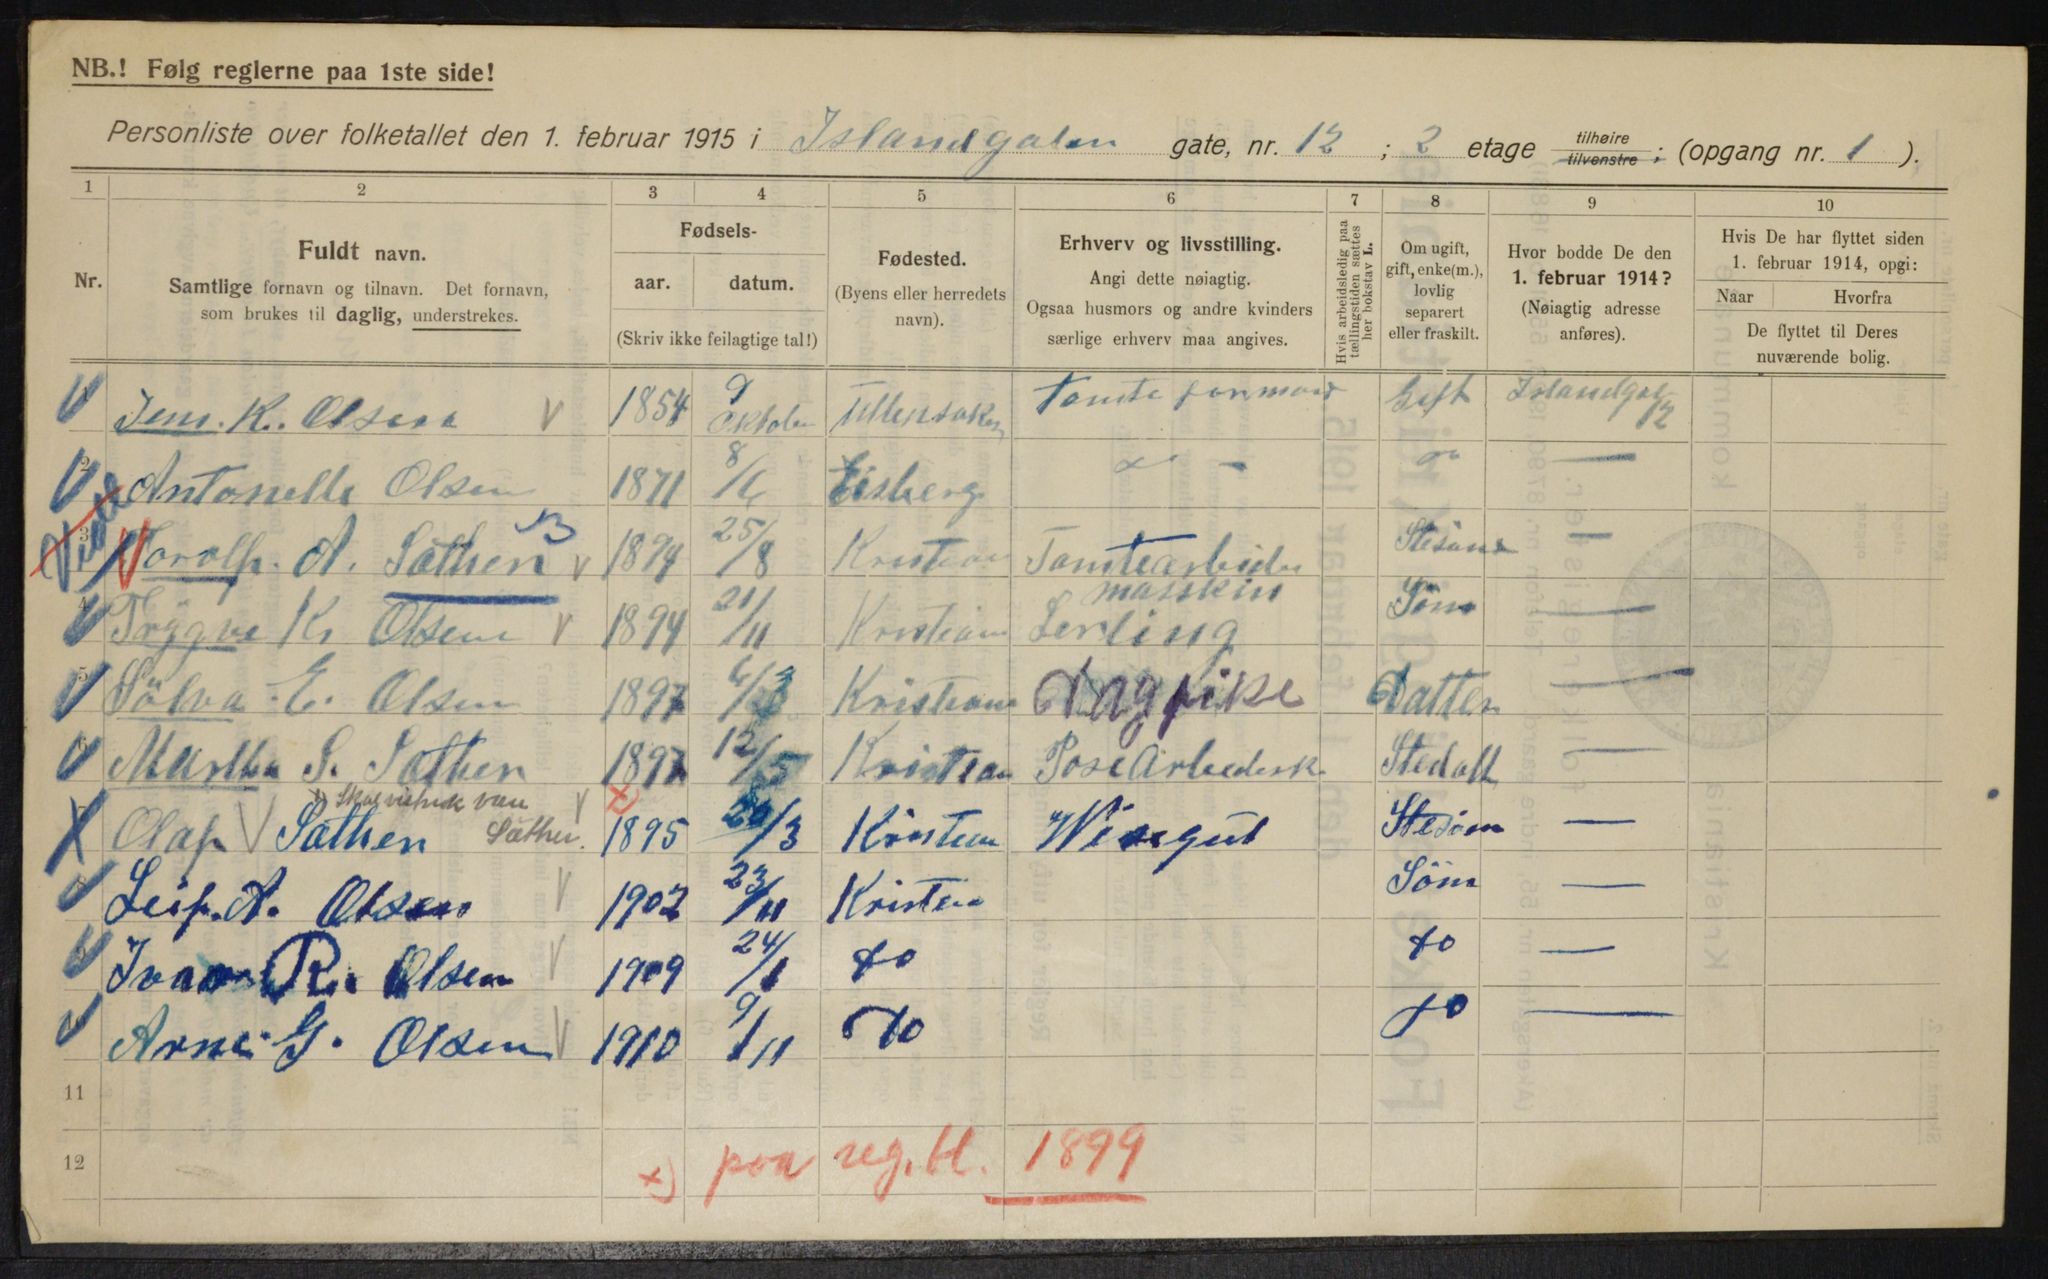 NB.! Følg reglerne paa 1ste side!
Personliste over folketallet den 1. februar 1915 i Islandgaten gate, nr. 12 ; 2 etage tilhøire tilvenstre ; (opgang nr. 1 ).
1 2 3 4 5 6 7 8 9 10
Nr.
Fuldt navn.
Samtlige fornavn og tilnavn. Det fornavn,
som brukes til daglig, understrekes.
Fødsels-
aar. datum.
(Skriv ikke feilagtige tal!)
Fødested.
(Byens eller herredets
navn).
Erhverv og livsstilling.
Angi dette nøiagtig.
Ogsaa husmors og andre kvinders
særlige erhverv maa angives.
Hvis arbeidsledig paa
tællingstiden sættes
her bokstav L.
Om ugift,
gift, enke(m.),
lovlig
separert
eller fraskilt.
Hvor bodde De den
1. februar 1914?
(Nøiagtig adresse
anføres).
Hvis De har flyttet siden
1. februar 1914, opgi:
Naar Hvorfra
De flyttet til Deres
nuværende bolig.
Jens. K. Olsen V 1854 9 Oktober Ullensaker Tomte formand Gift Islandgat 12
2 Antonette Olsen 1871 8/6 Eisberg — —
3 Torolf. A. Sæthen V 1894 25/8 Kristian Tomtearbeider Stesøn —
4 Trygve Kr Olsen V 1894 21/11 Kristian masskin Lerling Søn —
5 Sölva E. Olsen 1897 6/3 Kristian Dagpike Datter —
6 Martha S. Sæthen 1897 12/5 Kristian Posearbeidersk Stedatt —
7 Olaf V Sæthen x) Skal visstnok være Sæther. V x) 1895 20/3 Kristian Visergut Stesøn —
8 Leif. A. Olsen V 1902 23/11 Kristian Søn —
9 Ivar R. Olsen V 1909 24/1 do do —
Arne G. Olsen V 1910 9/11 do do —
11
12
x) paa reg. bl. 1899